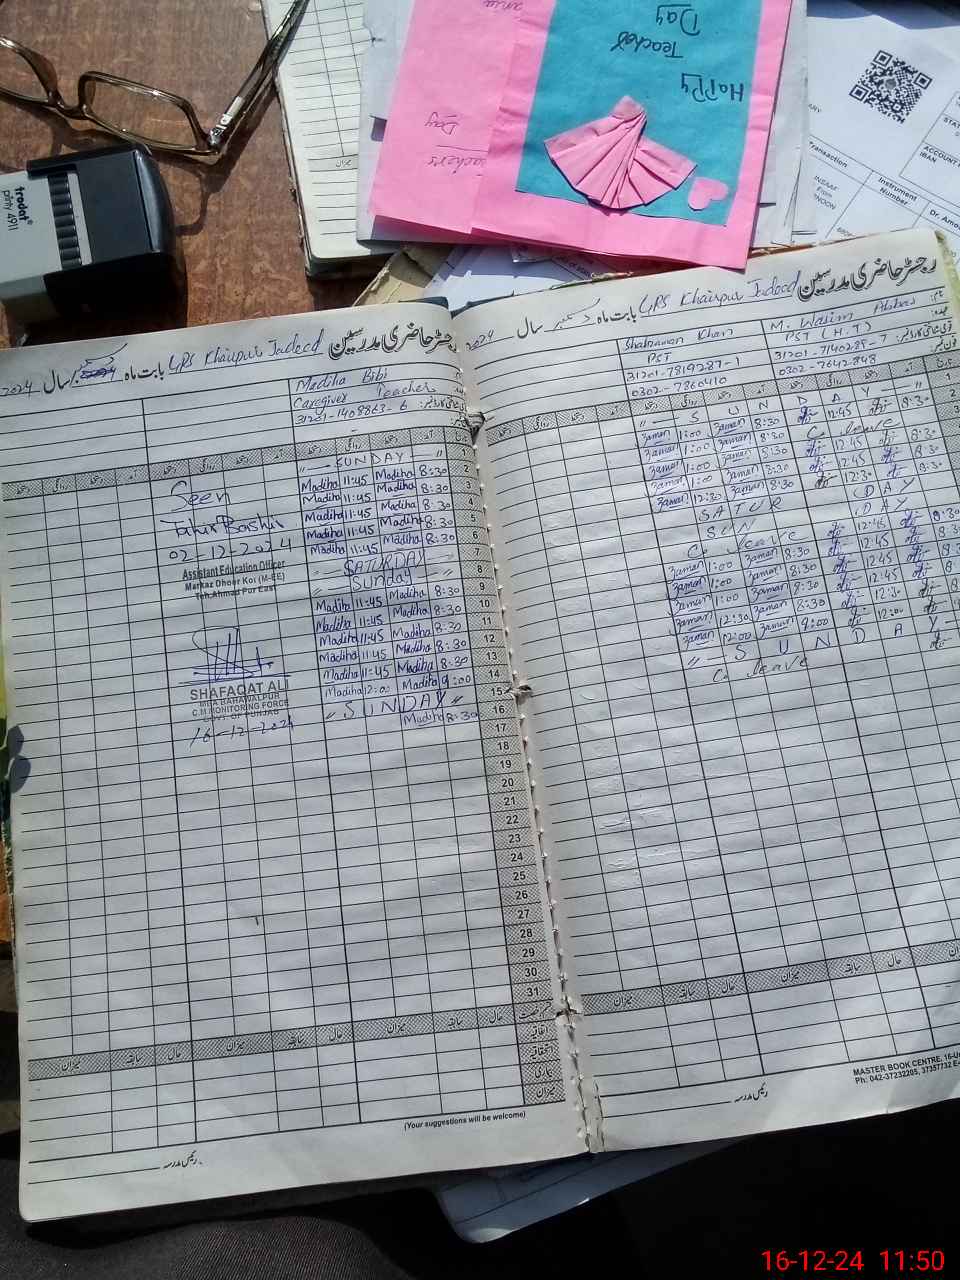 Happy
Teacher
Day
Teachers
Day
trodat
printy 4911
ACCOUNT
IBAN
Transaction
Instrument
Number
رجسٹر حاضری مدرسین
بابت ماہ GPS Khairpur Jadeed
دسمبر سال 2024
M. Wasim Abbas
PST (H.T)
0302-7642848
Shahzaman Khan
PST
31201-7819287-1
0302-7860410
" — S U N D A Y — "
Zaman 1:00 Zaman 8:30 C. leave
Zaman 1:00 Zaman 8:30 12:45 8:30
Zaman 1:00 Zaman 8:30 12:45 8:30
Zaman 12:30 Zaman 8:30 12:30 8:30
SATUR DAY
SUN DAY
C. leave 12:45 8:30
Zaman 1:00 Zaman 8:30 12:45
Zaman 1:00 Zaman 8:30 12:45
Zaman 1:00 Zaman 8:30 12:45
Zaman 12:30 Zaman 8:30 12:30
Zaman 12:00 Zaman 9:00 12:00
" — S U N D A Y —
C. leave
میزان سابقہ حال میزان سابقہ حال
MASTER BOOK CENTRE, 16-U
Ph: 042-37232205, 37357732
رئیس مدرسہ
رجسٹر حاضری مدرسین
بابت ماہ GPS Khairpur Jadeed
دسمبر سال 2024
Madiha Bibi
Caregiver Teacher
31201-1408863-6
1 " — SUNDAY — "
2 Madiha 11:45 Madiha 8:30
3 Madiha 11:45 Madiha 8:30
4 Madiha 11:45 Madiha 8:30
5 Madiha 11:45 Madiha 8:30
6 Madiha 11:45 Madiha 8:30
7 SATURDAY
8 " — Sunday — "
9 Madiha 11:45 Madiha 8:30
10 Madiha 11:45 Madiha 8:30
11 Madiha 11:45 Madiha 8:30
12 Madiha 11:45 Madiha 8:30
13 Madiha 11:45 Madiha 8:30
14 Madiha 12:00 Madiha 9:00
15 " SUNDAY "
16 Madiha 8:30
17
18
19
20
21
22
23
24
25
26
27
28
29
30
31
Seen
Tahir Bashir
02-12-2024
Assistant Education Officer
Markaz Dhoor Kot (M-EE)
Teh. Ahmad Pur East
SHAFAQAT ALI
MEA BAHAWALPUR
C.M MONITORING FORCE
GOVT. OF PUNJAB
16-12-2024
رخصت
اتفاقیہ
استحقاقیہ
بیماری
میزان
میزان سابقہ حال میزان سابقہ حال
(Your suggestions will be welcome)
رئیس مدرسہ
16-12-24 11:50